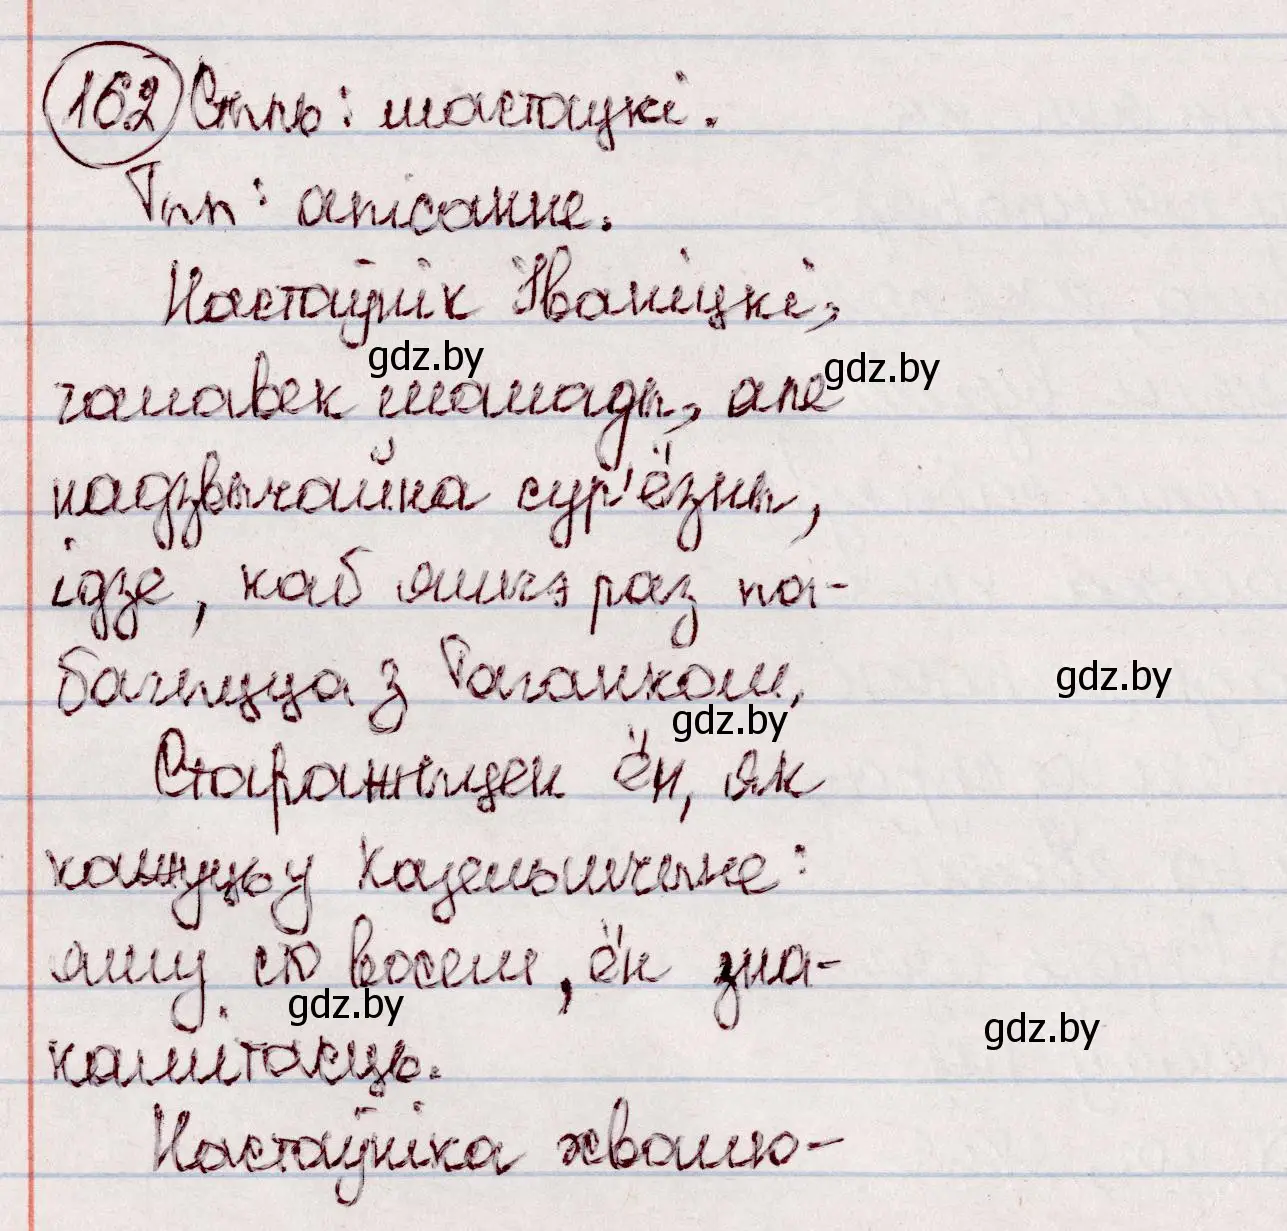 162 Стыль: мастацкі.
Тып: апісанне.
Настаўнік Іваніцкі,
gdz.by
gdz.by
чалавек малады, але
надзвычайна сур'ёзны,
ідзе, каб яшчэ раз па-
бачыцца з Таганком,
gdz.by
gdz.by
Старажыцен ён, як
кажуць у Казельшчыне:
яму сто восем, ён зна-
gdz.by
gdz.by
камітасць.
Настаўніка хвалю-